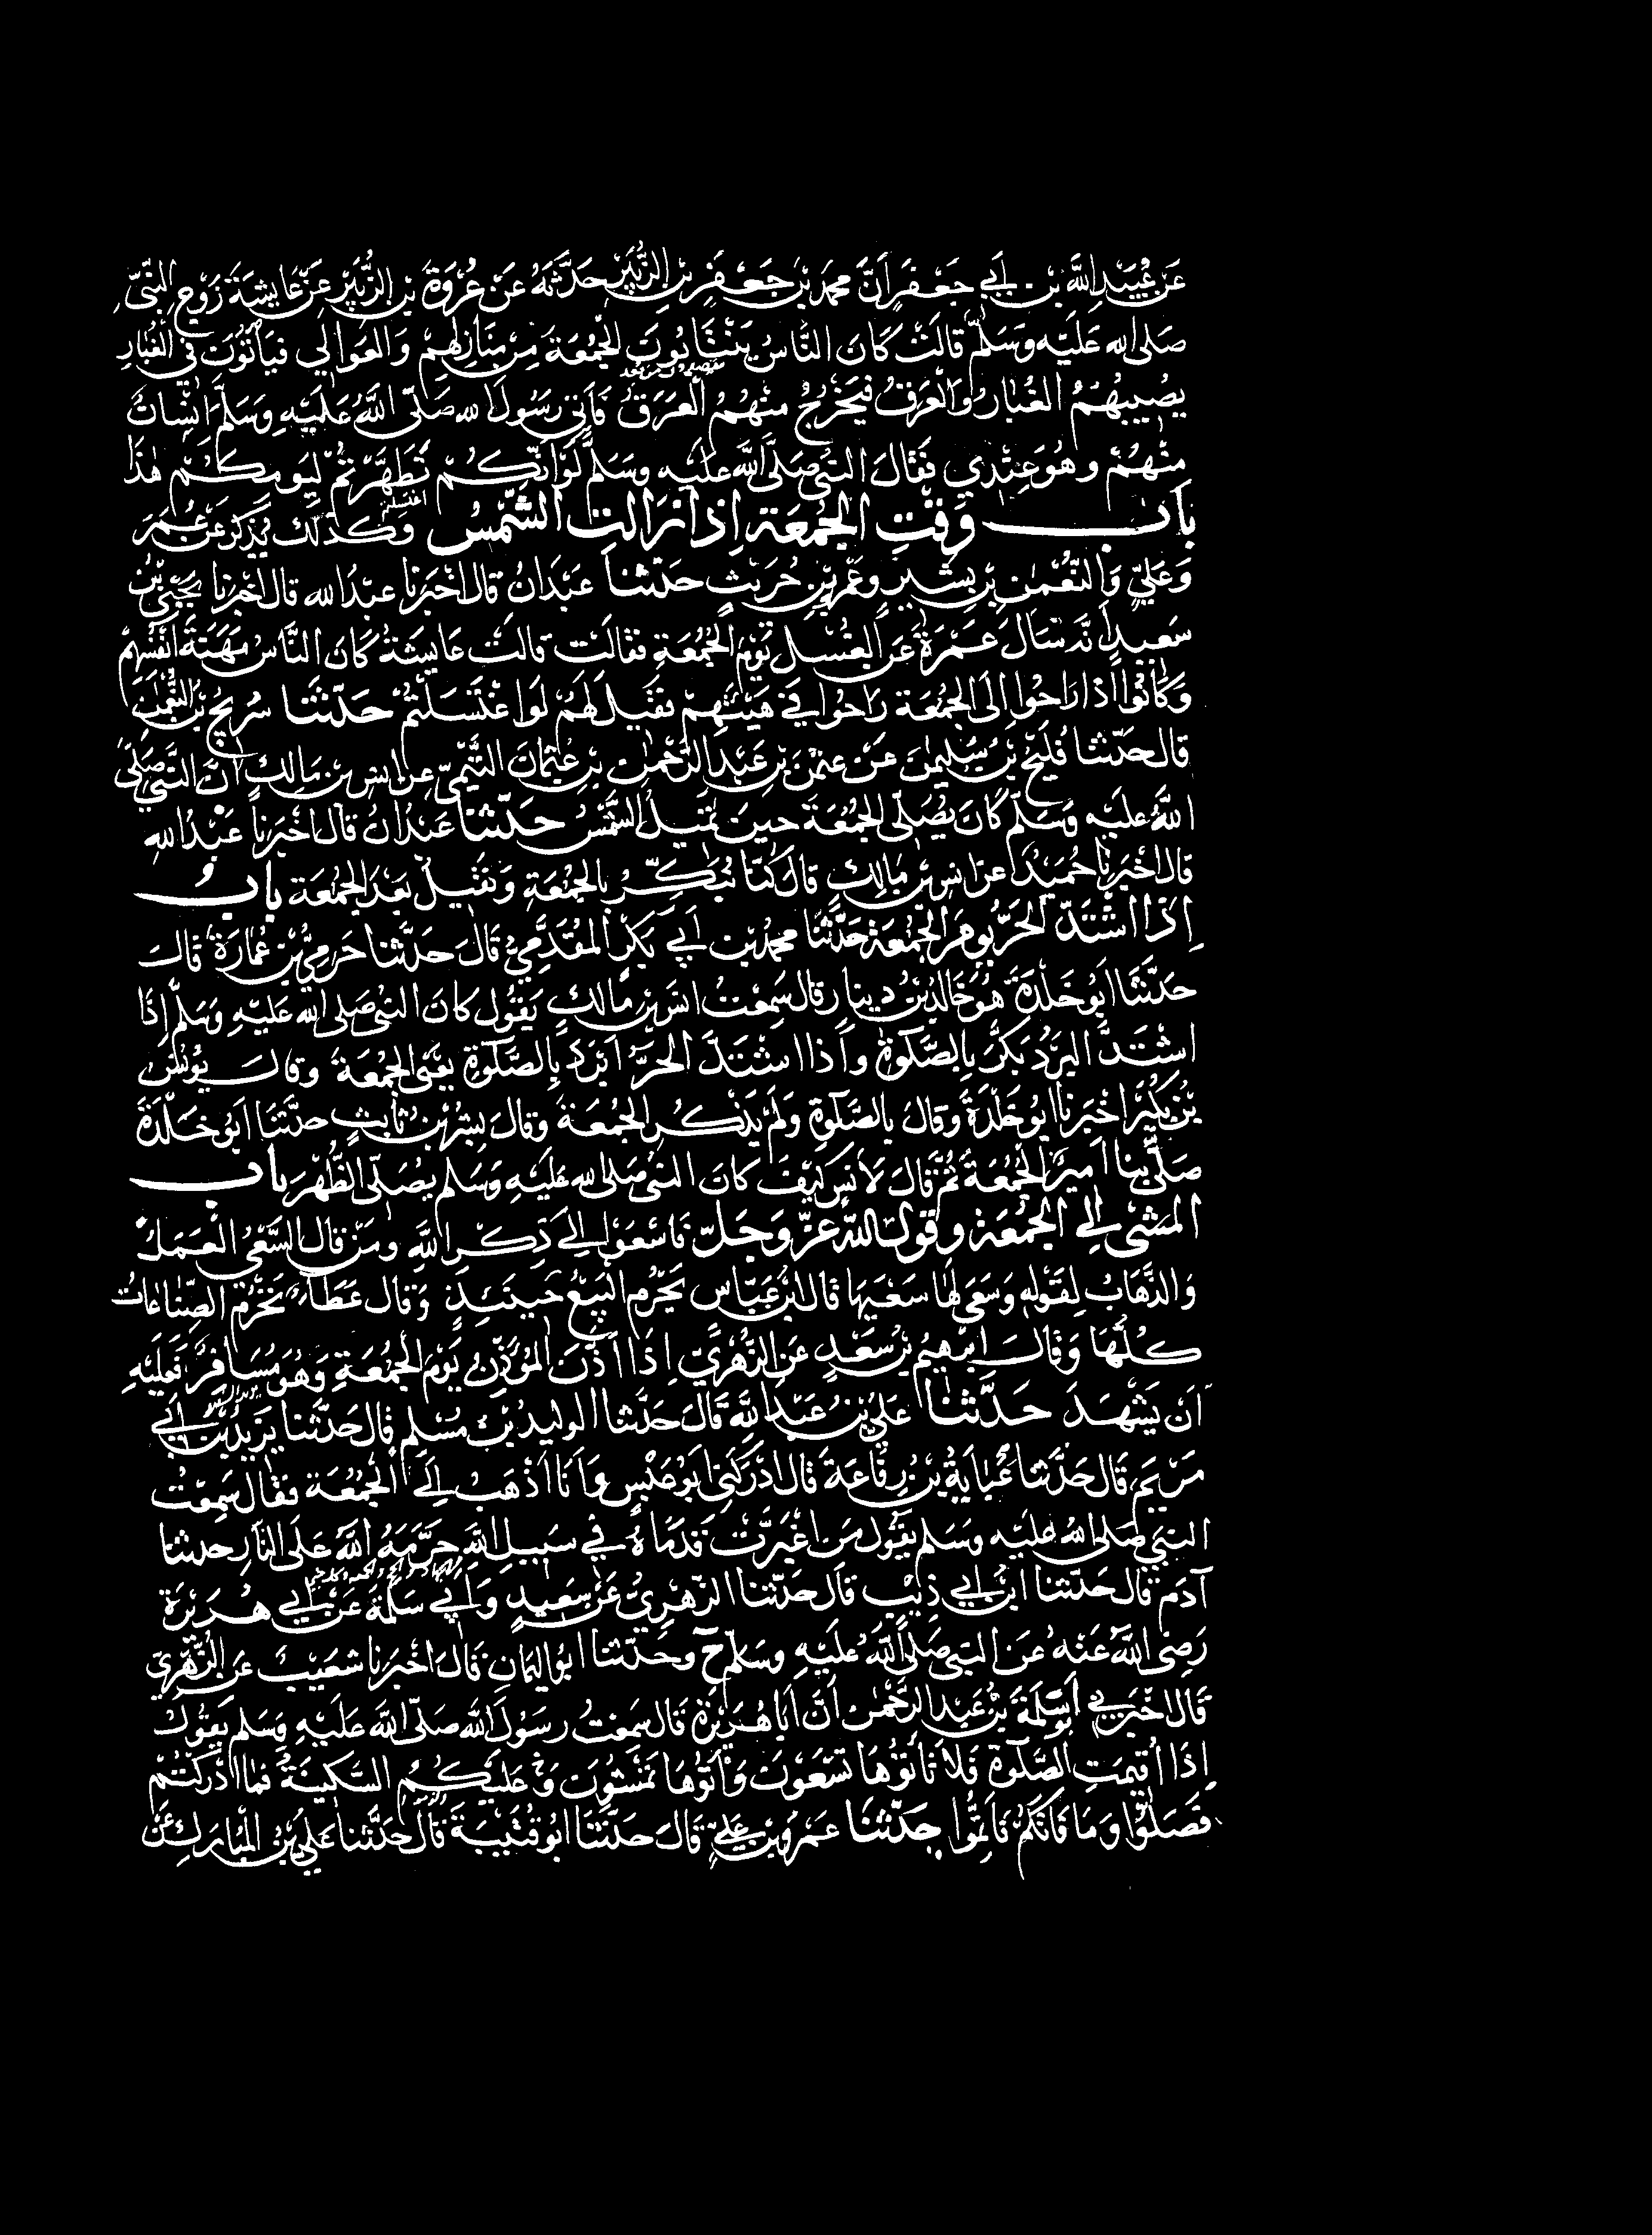 عَن عُبَيْدِ اللَّهِ بْنِ أَبِي جَعْفَرٍ أَنَّ مُحَمَّدَ بْنَ جَعْفَرِ بْنِ الزُّبَيْرِ حَدَّثَهُ عَنْ عُرْوَةَ بْنِ الزُّبَيْرِ عَنْ عَايِشَةَ زَوْجِ النَّبِيِّ
صَلى الله عَلَيْهِ وَسَلَّمَ قَالَتْ كَانَ النَّاسُ يَنْتَابُونَ الْجُمُعَةَ مِنْ مَنَازِلِهِمْ وَالْعَوَالِي فَيَأْتُونَ فِي الْغُبَارِ
يُصِيبُهُمُ الْغُبَارُ وَالْعَرَقُ فَيَخْرُجُ مِنْهُمُ الْعَرَقُ فَأَتَى رَسُولَ الله صَلَّى اللَّهُ عَلَيْهِ وَسَلَّمَ إِنْسَانٌ
مِنْهُمْ وَهُوَ عِنْدِي فَقَالَ النَّبِيُّ صَلَّى اللَّهُ عَلَيْهِ وَسَلَّمَ لَوْ أَنَّكُمْ تَطَهَّرْتُمْ لِيَوْمِكُمْ هَذَا
بَابُ وَقْتِ الْجُمُعَةِ إِذَا زَالَتِ الشَّمْسُ وَكَذَلِكَ يُذْكَرُ عَنْ عُمَرَ
وَعَلِيٍّ وَالنُّعْمٰنِ بْنِ بَشِيرٍ وَعَمْرِو بْنِ حُرَيْثٍ حَدَّثَنَا عَبْدَانُ قَالَ أَخْبَرَنَا عَبْدُ الله قَالَ أَخْبَرَنَا يَحْيَى بْنُ
سَعِيدٍ أَنَّهُ سَأَلَ عَمْرَةَ عَنِ الْغُسْلِ يَوْمَ الْجُمُعَةِ فَقَالَتْ قَالَتْ عَايِشَةُ كَانَ النَّاسُ مَهَنَةَ أَنْفُسِهِمْ
وَكَانُوا إِذَا رَاحُوا إِلَى الْجُمُعَةِ رَاحُوا فِي هَيْئَتِهِمْ فَقِيلَ لَهُمْ لَوِ اغْتَسَلْتُمْ حَدَّثَنَا سُرَيْجُ بْنُ النُّعْمٰنِ
قَالَ حَدَّثَنَا فُلَيْحُ بْنُ سُلَيْمٰنَ عَنْ عُثْمٰنَ بْنِ عَبْدِ الرَّحْمٰنِ بْنِ عُثْمَانَ التَّيْمِيِّ عَنْ أَنَسِ بْنِ مَالِكٍ أَنَّ النَّبِيَّ صَلَّى
اللَّهُ عَلَيْهِ وَسَلَّمَ كَانَ يُصَلِّي الْجُمُعَةَ حِينَ تَمِيلُ الشَّمْسُ حَدَّثَنَا عَبْدَانُ قَالَ أَخْبَرَنَا عَبْدُ اللهِ
قَالَ أَخْبَرَنَا حُمَيْدٌ عَنْ أَنَسِ بْنِ مَالِكٍ قَالَ كُنَّا نُبَكِّرُ بِالْجُمُعَةِ وَنَقِيلُ بَعْدَ الْجُمُعَةِ بَابُ
إِذَا اشْتَدَّ الْحَرُّ يَوْمَ الْجُمُعَةِ حَدَّثَنَا مُحَمَّدُ بْنُ أَبِي بَكْرٍ الْمُقَدَّمِيُّ قَالَ حَدَّثَنَا حَرَمِيُّ بْنُ عُمَارَةَ قَالَ
حَدَّثَنَا أَبُو خَلْدَةَ هُوَ خَالِدُ بْنُ دِينَارٍ قَالَ سَمِعْتُ أَنَسَ بْنَ مَالِكٍ يَقُولُ كَانَ النَّبِيُّ صَلى الله عَلَيْهِ وَسَلَّمَ إِذَا
اشْتَدَّ الْبَرْدُ بَكَّرَ بِالصَّلَوٰةِ وَإِذَا اشْتَدَّ الْحَرُّ أَبْرَدَ بِالصَّلَوٰةِ يَعْنِي الْجُمُعَةَ وَقَالَ يُونُسُ
بْنُ بُكَيْرٍ أَخْبَرَنَا أَبُو خَلْدَةَ وَقَالَ بِالصَّلَوٰةِ وَلَمْ يَذْكُرِ الْجُمُعَةَ وَقَالَ بِشْرُ بْنُ ثَابِتٍ حَدَّثَنَا أَبُو خَلْدَةَ
صَلَّى بِنَا أَمِيرٌ الْجُمُعَةَ ثُمَّ قَالَ لِأَنَسٍ كَيْفَ كَانَ النَّبِيُّ صَلى الله عَلَيْهِ وَسَلَّمَ يُصَلِّي الظُّهْرَ بَابُ
الْمَشْيِ إِلَى الْجُمُعَةِ وَقَوْلِ اللَّهِ عَزَّ وَجَلَّ فَاسْعَوْا إِلَى ذِكْرِ اللَّهِ وَمَنْ قَالَ السَّعْيُ الْعَمَلُ
وَالذَّهَابُ لِقَوْلِهِ وَسَعَى لَهَا سَعْيَهَا قَالَ ابْنُ عَبَّاسٍ يَحْرُمُ الْبَيْعُ حِينَئِذٍ وَقَالَ عَطَاءٌ تَحْرُمُ الصِّنَاعَاتُ
كُلُّهَا وَقَالَ إِبْرٰهِيمُ بْنُ سَعْدٍ عَنِ الزُّهْرِيِّ إِذَا أَذَّنَ الْمُؤَذِّنُ يَوْمَ الْجُمُعَةِ وَهُوَ مُسَافِرٌ فَعَلَيْهِ
أَنْ يَشْهَدَ حَدَّثَنَا عَلِيُّ بْنُ عَبْدِ اللَّهِ قَالَ حَدَّثَنَا الْوَلِيدُ بْنُ مُسْلِمٍ قَالَ حَدَّثَنَا يَزِيدُ بْنُ أَبِي
مَرْيَمَ قَالَ حَدَّثَنَا عَبَايَةُ بْنُ رِفَاعَةَ قَالَ أَدْرَكَنِي أَبُو عَبْسٍ وَأَنَا أَذْهَبُ إِلَى الْجُمُعَةِ فَقَالَ سَمِعْتُ
النَّبِيَّ صَلَى اللهُ عَلَيْهِ وَسَلَّمَ يَقُولُ مَنِ اغْبَرَّتْ قَدَمَاهُ فِي سَبِيلِ اللَّهِ حَرَّمَهُ اللَّهُ عَلَى النَّارِ حدثنا
آدَمُ قَالَ حَدَّثَنَا ابْنُ أَبِي ذِئْبٍ قَالَ حَدَّثَنَا الزُّهْرِيُّ عَنْ سَعِيدٍ وَأَبِي سَلَمَةَ عَنْ أَبِي هُرَيْرَةَ
رَضِيَ اللَّهُ عَنْهُ عَنِ النَّبِيِّ صَلَّى اللَّهُ عَلَيْهِ وَسَلَّمَ ح وَحَدَّثَنَا أَبُو الْيَمَانِ قَالَ أَخْبَرَنَا شُعَيْبٌ عَنِ الزُّهْرِيِّ
قَالَ أَخْبَرَنِي أَبُو سَلَمَةَ بْنُ عَبْدِ الرَّحْمٰنِ أَنَّ أَبَا هُرَيْرَةَ قَالَ سَمِعْتُ رَسُولَ اللَّهِ صَلَّى اللَّهُ عَلَيْهِ وَسَلَّمَ يَقُولُ
إِذَا أُقِيمَتِ الصَّلَوٰةُ فَلَا تَأْتُوهَا تَسْعَوْنَ وَأْتُوهَا تَمْشُونَ وَعَلَيْكُمُ السَّكِينَةُ فَمَا أَدْرَكْتُمْ
فَصَلُّوا وَمَا فَاتَكُمْ فَأَتِمُّوا حَدَّثَنَا عَمْرُو بْنُ عَلِيٍّ قَالَ حَدَّثَنَا أَبُو قُتَيْبَةَ قَالَ حَدَّثَنَا عَلِيُّ بْنُ الْمُبَارَكِ عَنْ